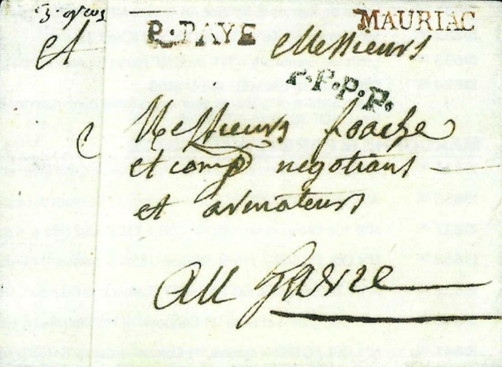 P. PAYE MAURIAC
et Messieurs
P.P.P.P.
Messieurs foache
et comp negotians
et armateurs
au havre